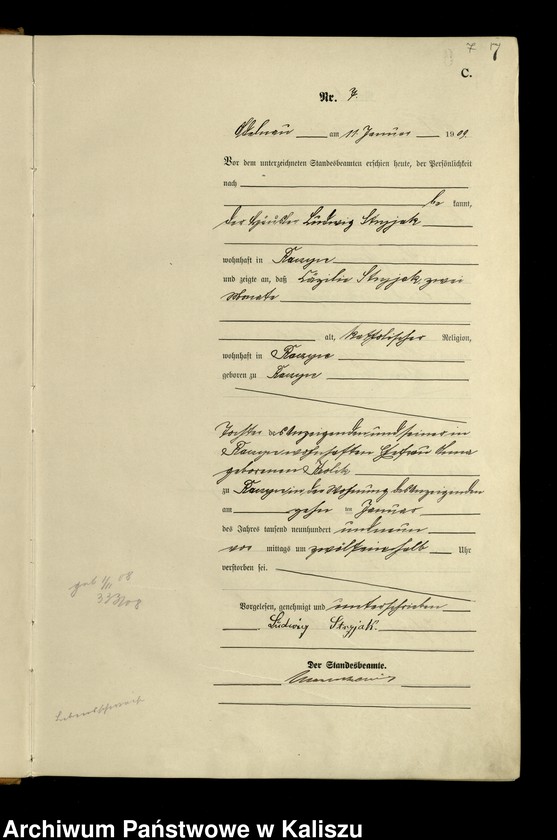 7 7
C.
Nr. 7.
Adelnau am 11. Januar 1909.
Vor dem unterzeichneten Standesbeamten erschien heute, der Persönlichkeit
nach
be kannt,
der Häusler Ludwig Stryjak
wohnhaft in
und zeigte an, daß Cäzilie Stryjak zwei
Monate
alt, katholischer Religion,
wohnhaft in
geboren zu
Tochter des Anzeigenden und seiner in
wohnhaften Ehefrau Anna
geborenen
zu in der Wohnung des Anzeigenden
am zehn ten Januar
des Jahres tausend neunhundert und neun
vor mittags um zwölfeinhalb Uhr
verstorben sei.
Vorgelesen, genehmigt und unterschrieben
Ludwig Stryjak.
Der Standesbeamte.
geb
Lebensschwach
Archiwum Państwowe w Kaliszu